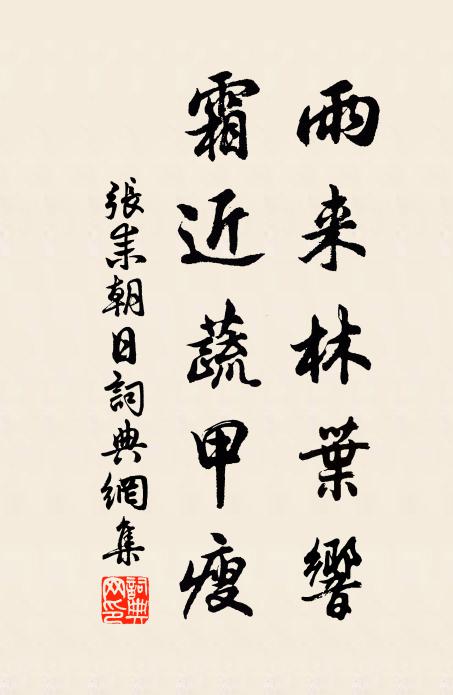 雨来林葉響
霜近蔬甲瘦
張耒朝日詞典網集
詞典网印